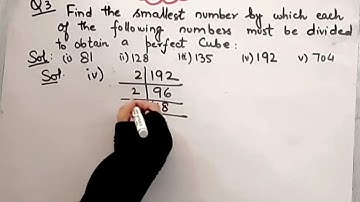 Q3 Find the smallest number by which each
of the following numbers must be divided
to obtain a perfect Cube:
Sol: (i) 81 (ii) 128 (iii) 135 (iv) 192 v) 704
Sol: iv) 2 | 192
2 | 96
8